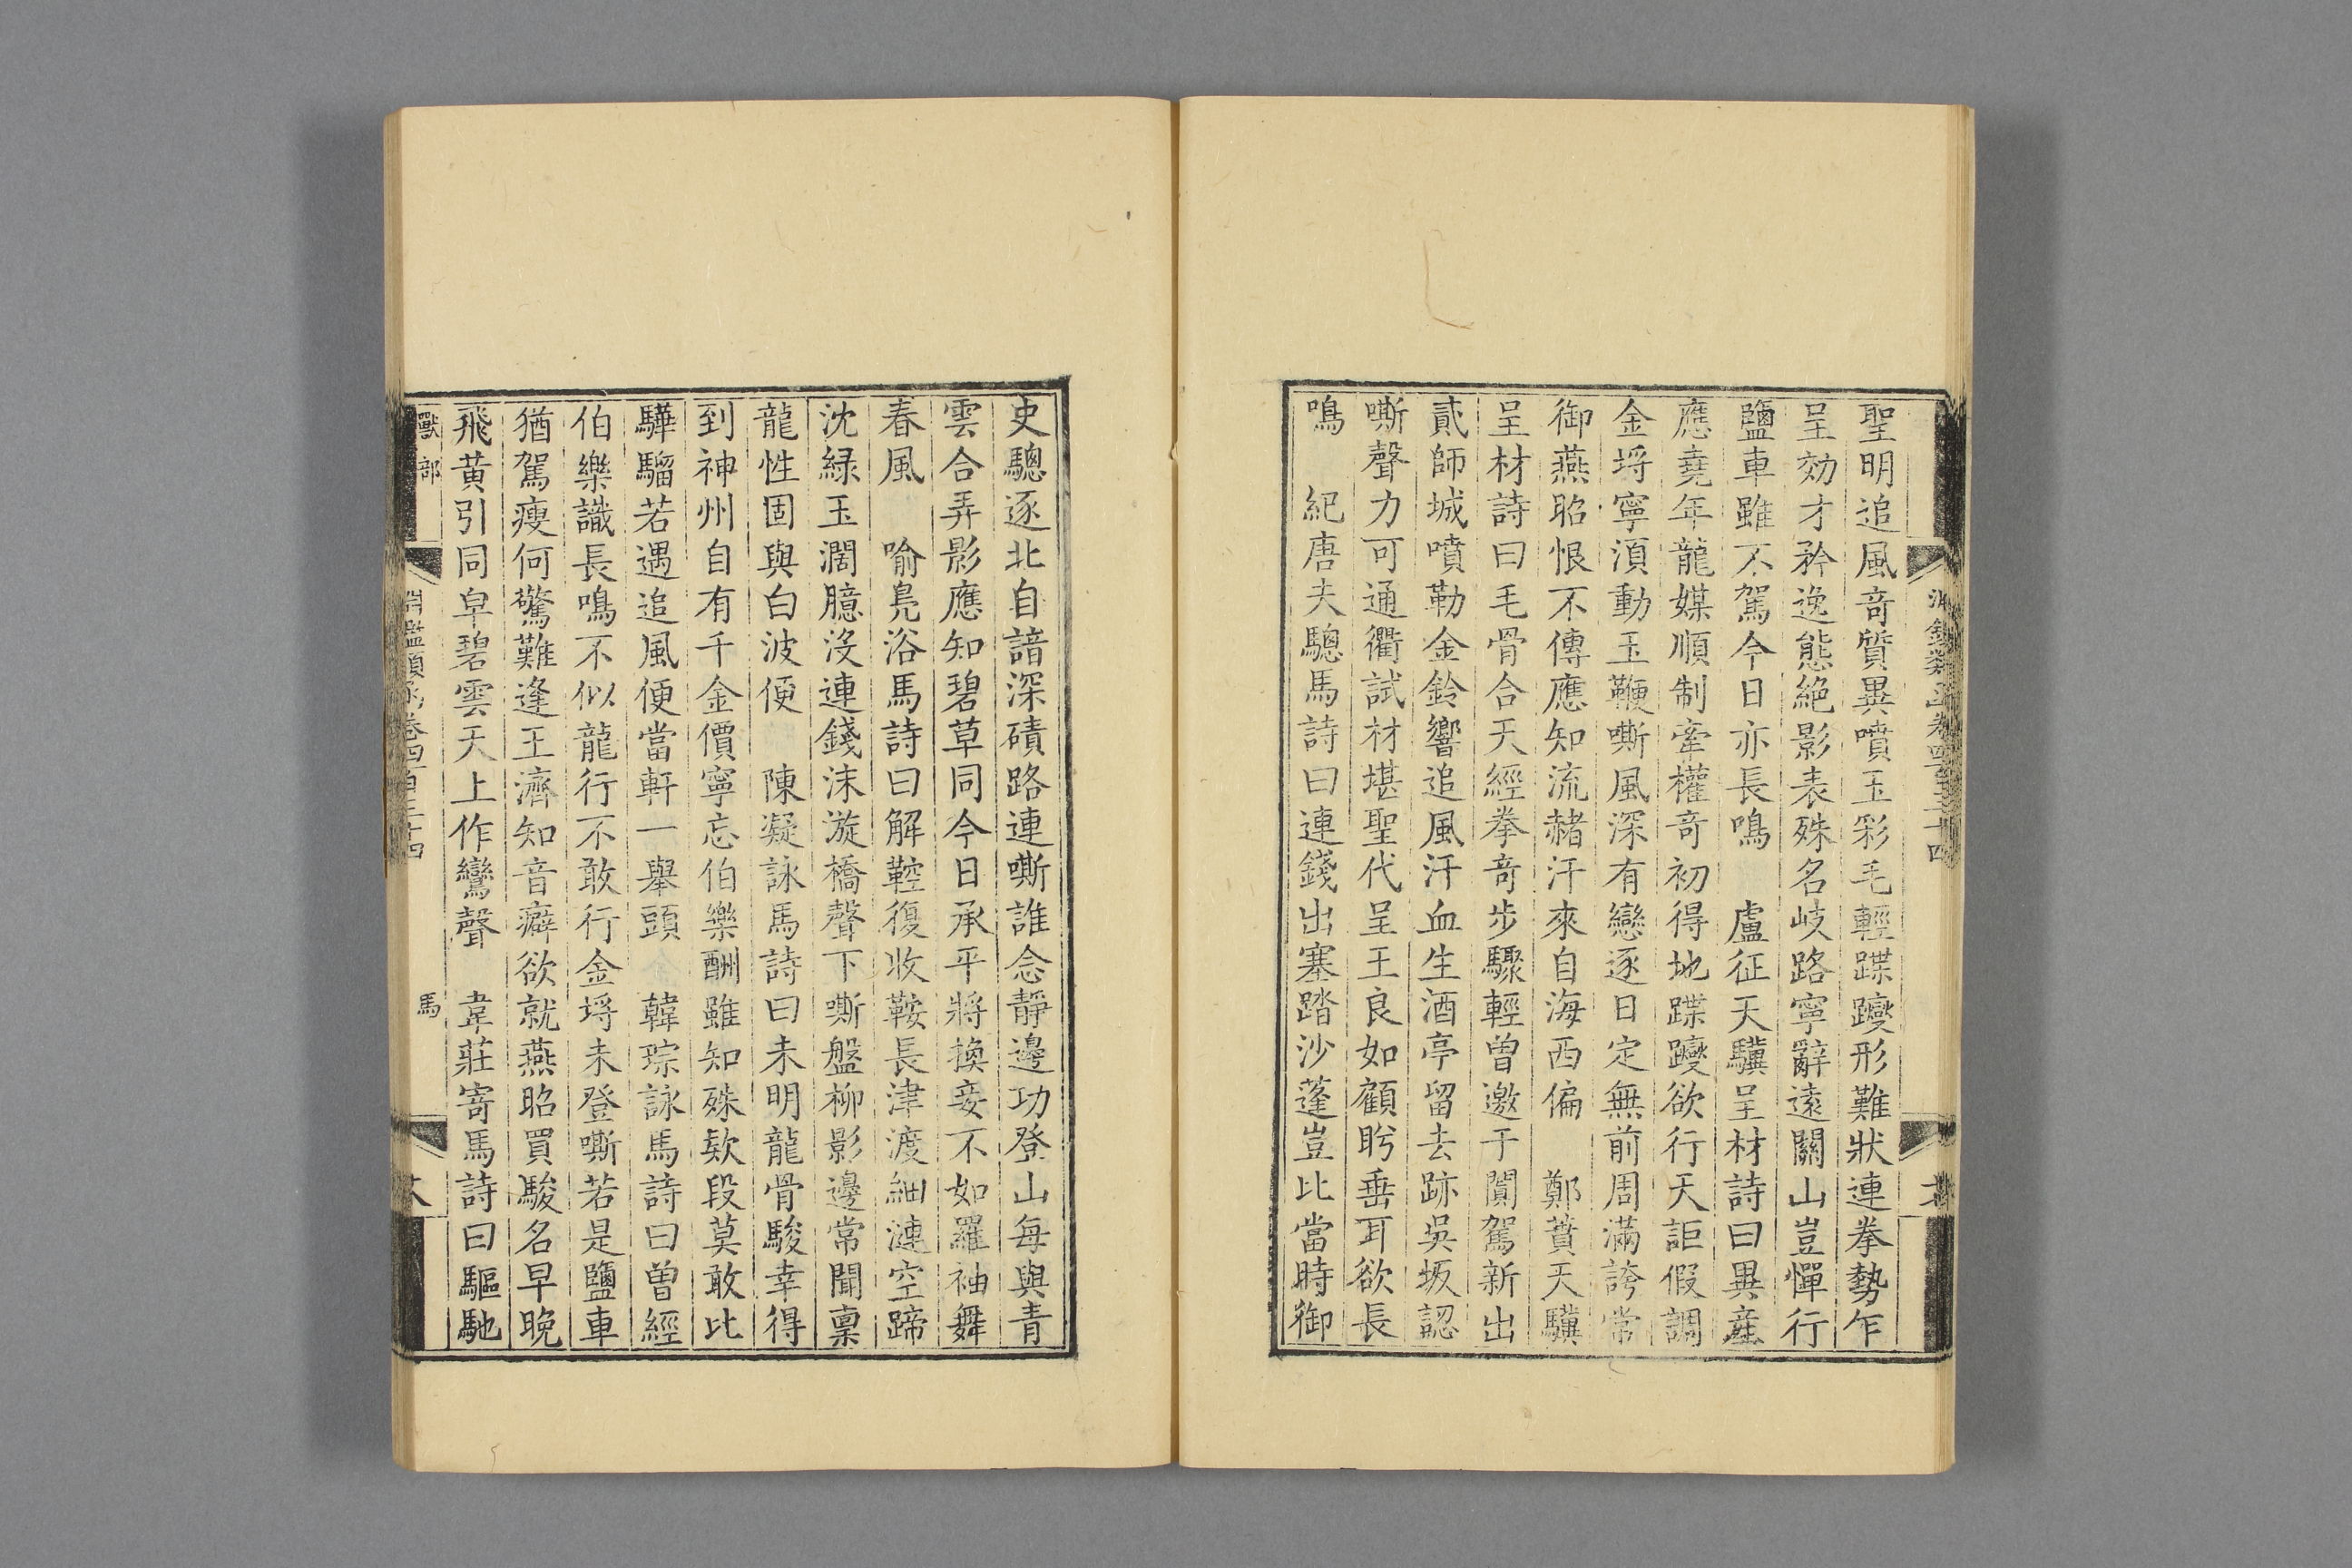 聖明追風奇質異噴玉彩毛輕蹀躞形難狀連拳勢乍
呈効才矜逸態絕影表殊名岐路寧辭遠關山豈憚行
鹽車雖不駕今日亦長鳴　盧征天驥呈材詩曰異產
應堯年龍媒順制牽權奇初得地蹀躞欲行天詎假調
金埒寧須動玉鞭嘶風深有戀逐日定無前周滿誇常
御燕昭恨不傳應知流赭汗來自海西偏　鄭蕡天驥
呈材詩曰毛骨合天經拳奇步驟輕曾邀于闐駕新出
貳師城噴勒金鈴響追風汗血生酒亭留去跡吳坂認
嘶聲力可通衢試材堪聖代呈王良如顧盻垂耳欲長
鳴　紀唐夫驄馬詩曰連錢出塞踏沙蓬豈比當時御
史驄逐北自諳深磧路連嘶誰念靜邊功登山每與青
雲合弄影應知碧草同今日承平將換妾不如羅袖舞
春風　喻鳧浴馬詩曰解鞚復收鞍長津渡紬漣空蹄
沈綠玉濶臆沒連錢沫漩橋聲下嘶盤柳影邊常聞稟
龍性固與白波便　陳凝詠馬詩曰未明龍骨駿幸得
到神州自有千金價寧忘伯樂酬雖知殊欵段莫敢比
驊騮若遇追風便當軒一舉頭　韓琮詠馬詩曰曾經
伯樂識長鳴不似龍行不敢行金埒未登嘶若是鹽車
猶駕瘦何驚難逢王濟知音癖欲就燕昭買駿名早晚
飛黃引同皁碧雲天上作鸞聲　韋莊寄馬詩曰驅馳
獸部
淵鑑類函卷四百三十四
馬